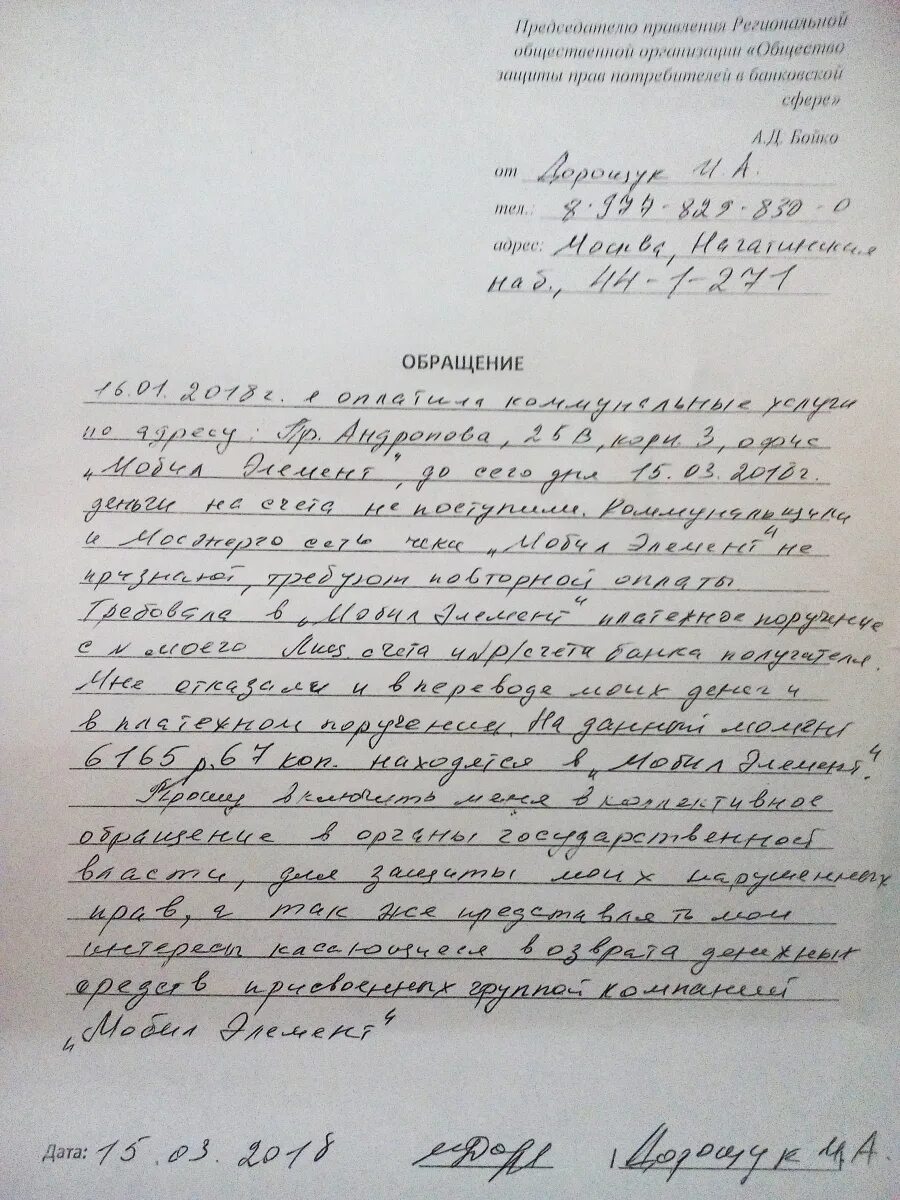 Председателю правления Региональной
общественной организации «Общество
защиты прав потребителей в банковской
сфере»
А.Д. Бойко
от Дорощук И. А.
тел.: 8-977-829-830-0
адрес: Москва, Нагатинская
наб., 44-1-271
ОБРАЩЕНИЕ
16.01.2018г. я оплатила коммунальные услуги
по адресу: Пр. Андропова, 25В, корп. 3, офис
„Мобил Элемент", до сего дня 15.03.2018г.
деньги на счета не поступили. Коммунальщики
и Мосэнерго сеть чеки „Мобил Элемент" не
признают, требуют повторной оплаты.
Требовала в „Мобил Элемент" платежное поручение
с N моего Лиц счета и N р/счета банка получателя.
Мне отказали и в переводе моих денег и
в платежном поручении. На данный момент
6165 р. 67 коп. находятся в „Мобил Элемент".
Прошу включить меня в коллективное
обращение в органы государственной
власти, для защиты моих нарушенных
прав, а так же представлять мои
интересы касающиеся возврата денежных
средств присвоенных группой компаний
„Мобил Элемент"
Дата: 15.03.2018 Дорощук И. А.